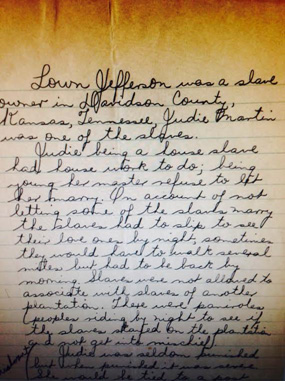 Lown Jefferson was a slave
owner in Davidson County,
Kansas, Tennessee, Judie Martin
was one of the slaves.
Judie being a house slave
had house work to do; being
young her master refuse to let
her marry. On account of not
letting some of the slaves marry
the slaves had to slip to see
their love ones by night, sometimes
they would have to walk several
miles but had to be back by
morning. Slaves were not allowed to
associate with slaves of another
plantation. There were
(peoples riding by night to see if
the slaves stayed on the plantation
and not get into mischief)
Judie was seldom punished
but when punished it was severe
would be tied to a